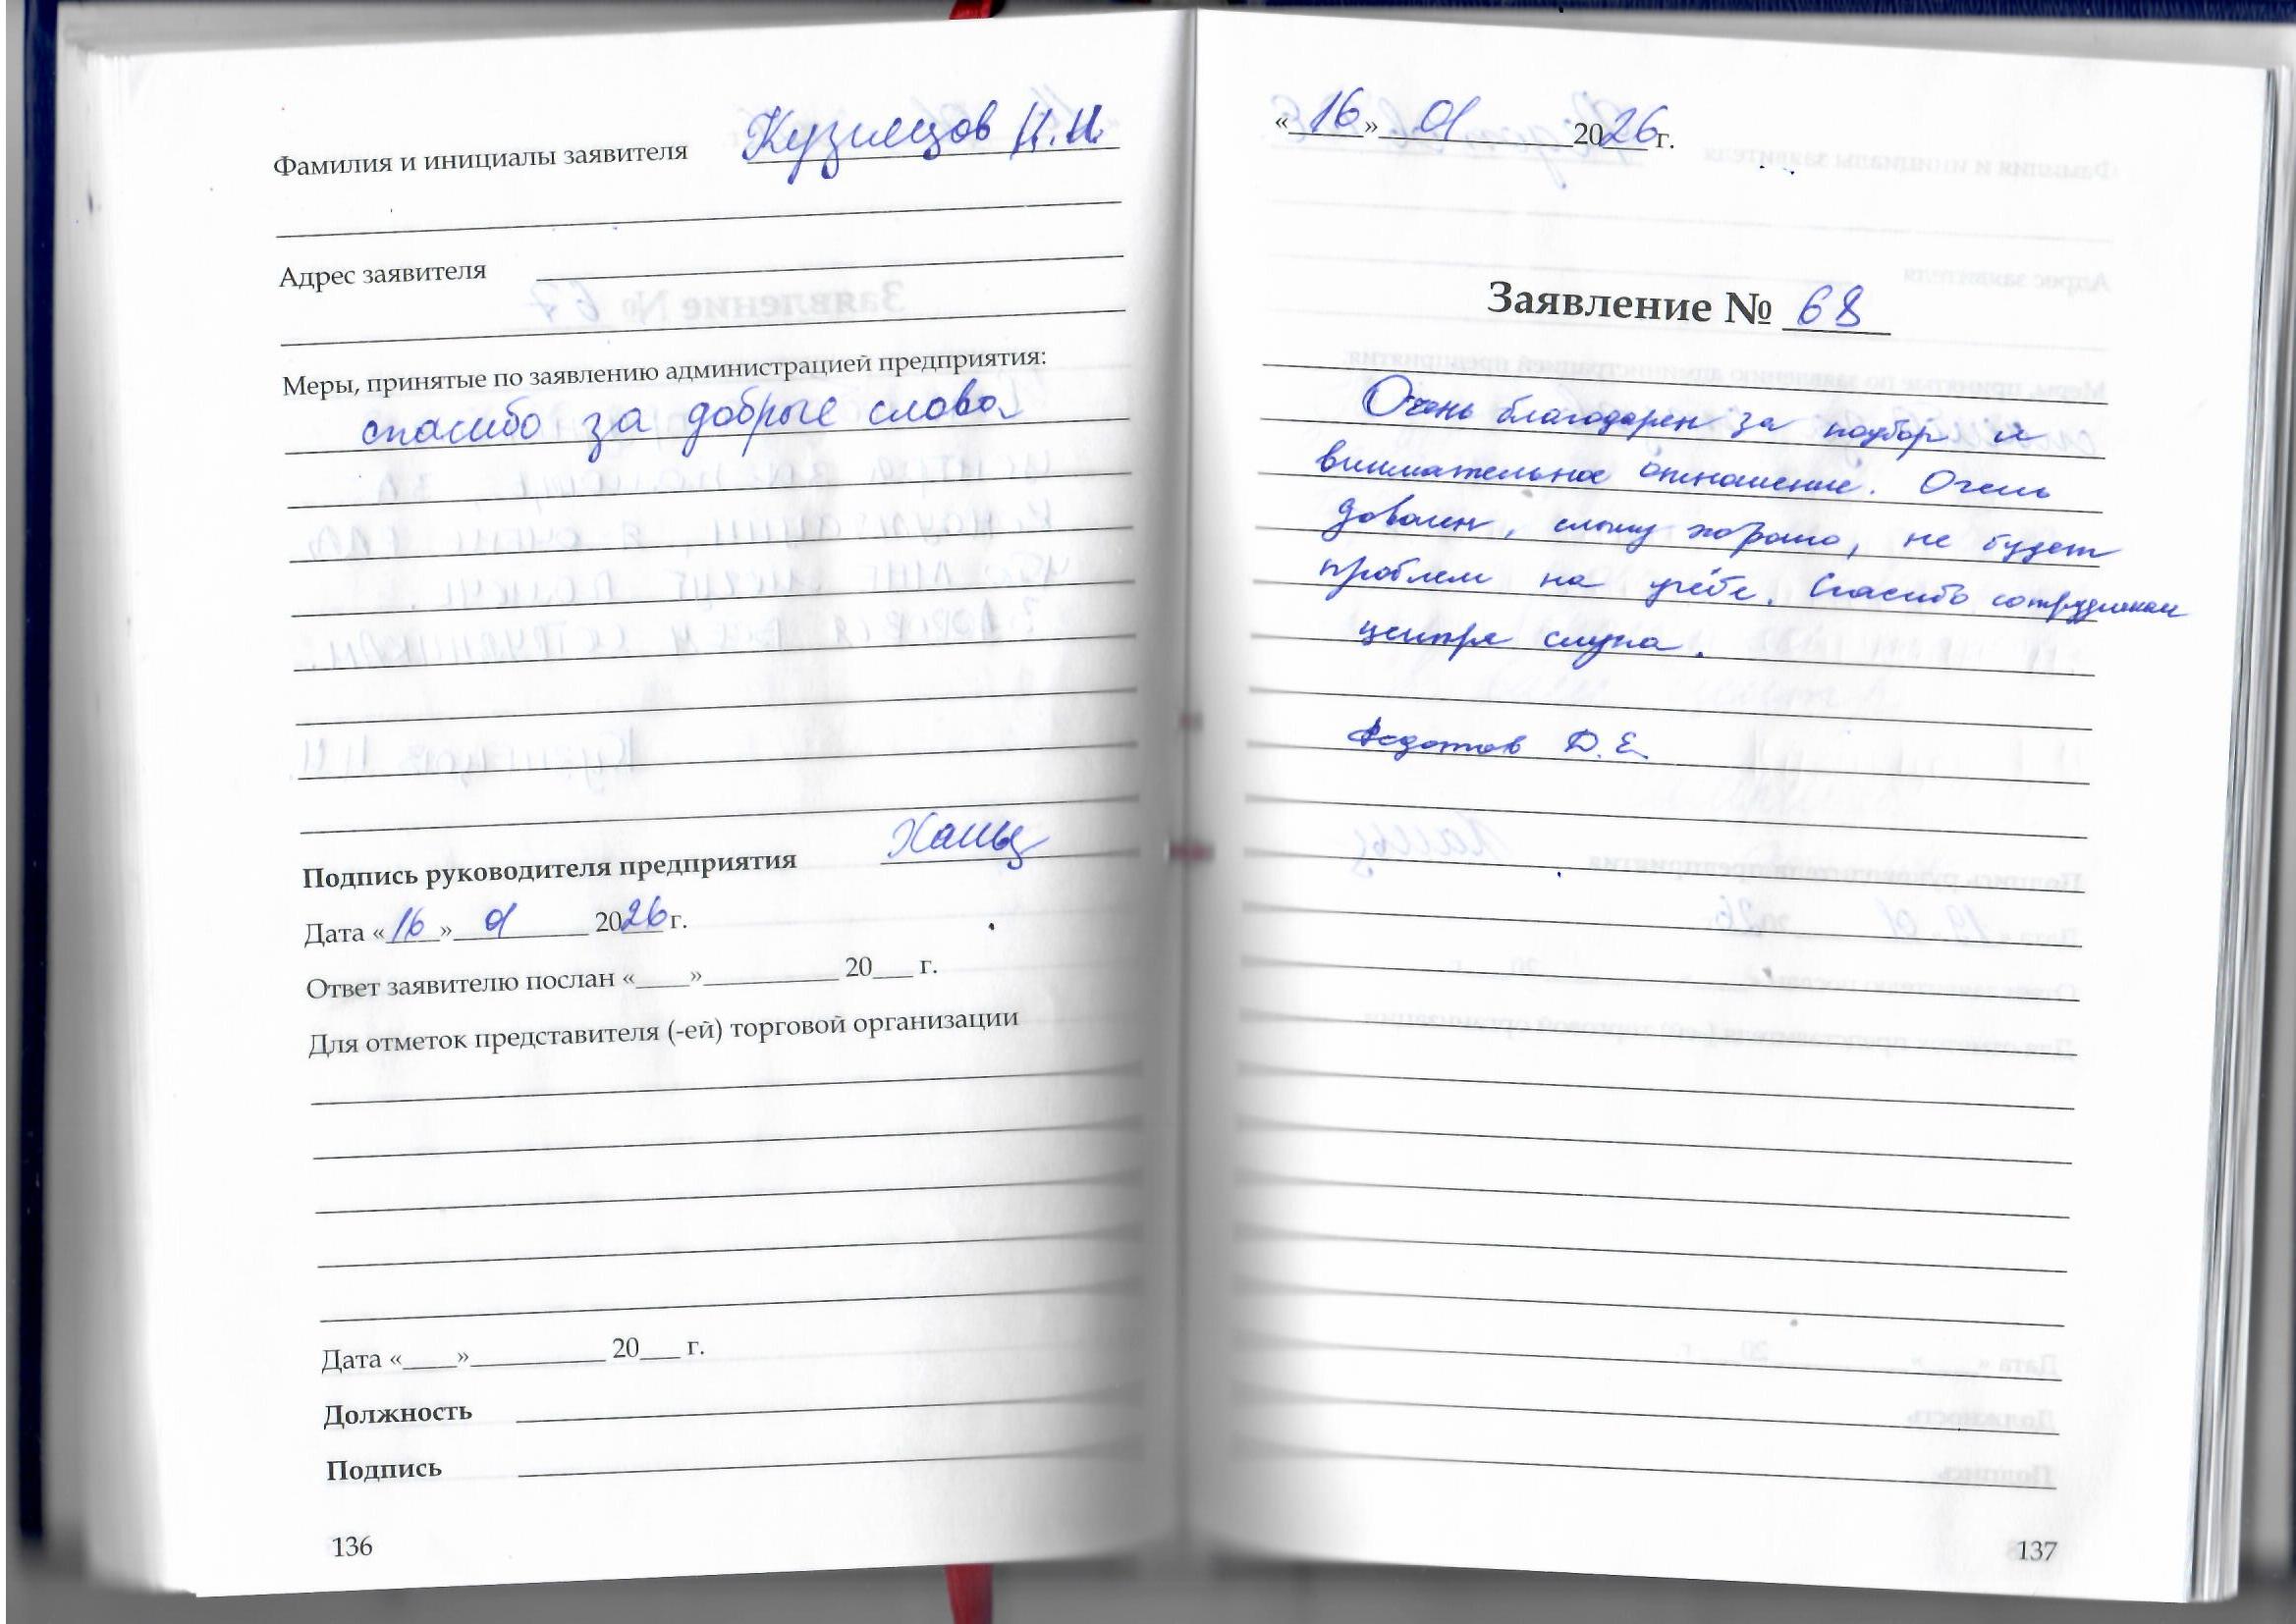 Фамилия и инициалы заявителя Кузнецов Н.И.
Адрес заявителя
Меры, принятые по заявлению администрацией предприятия:
спасибо за добрые слова
Подпись руководителя предприятия
Дата «16» 01 2026 г.
Ответ заявителю послан «____»__________ 20___ г.
Для отметок представителя (-ей) торговой организации
Дата «____»__________ 20___ г.
Должность
Подпись
136
«16» 01 2026 г.
Заявление № 68
Очень благодарен за подбор и
внимательное отношение. Очень
доволен, слышу хорошо, не будет
проблем на учёбе. Спасибо сотрудникам
центра слуха.
Федотов Д.Е.
137